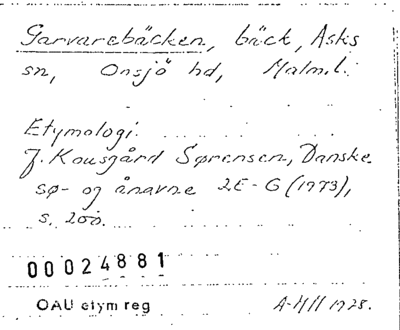 Garvarebäcken, bäck, Asks
sn, Onsjö hd, Malm.l.
Etymologi:
J. Kousgård Sørensen, Danske
sø- og ånavne 2E-G (1973),
s. 200.
00024881
OAU etym reg
1978.